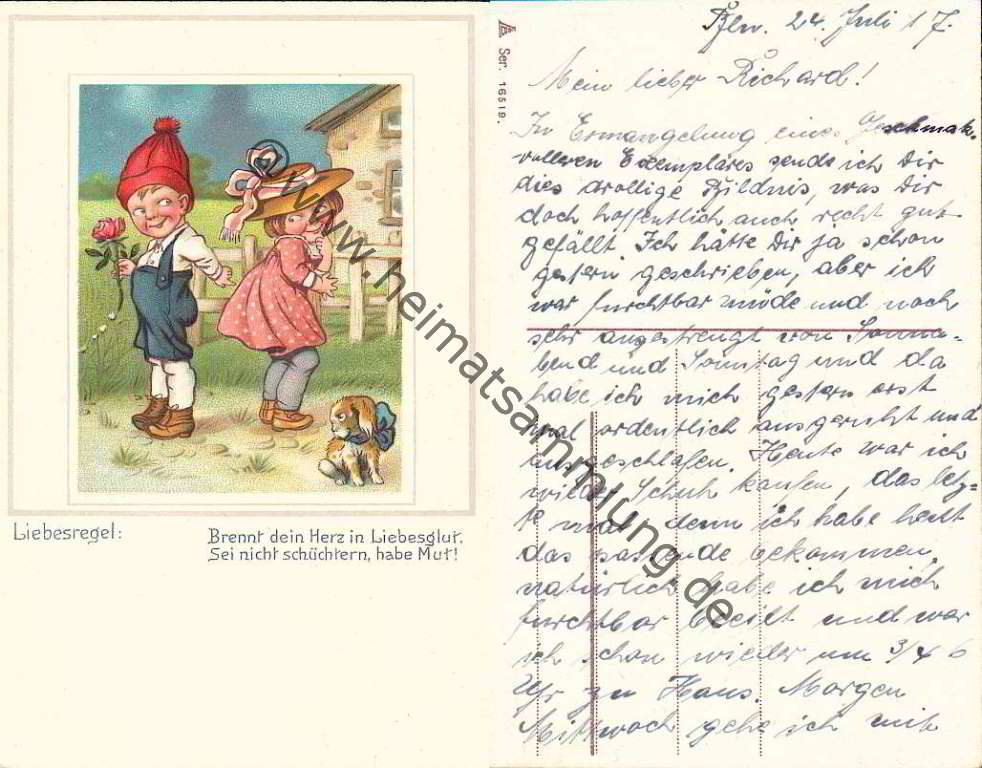 Liebesregel:
Brennt dein Herz in Liebesglut,
Sei nicht schüchtern, habe Mut!
www.heimatsammlung.de
Ser. 16519.
Bln. 24. Juli 17.
Mein lieber Richard!
In Ermangelung eines Geschmak-
volleren Exemplares sende ich Dir
dies drollige Bildnis, was Dir
doch hoffentlich auch recht gut
gefällt. Ich hätte Dir ja schon
gestern geschrieben, aber ich
war furchtbar müde und noch
sehr angestrengt von Sonna-
bend und Sonntag und da
habe ich mich gestern erst
mal ordentlich ausgeruht und
ausgeschlafen. Heute war ich
wieder Schuh kaufen, das letz-
te mal, denn ich habe heut
das passende bekommen,
natürlich habe ich mich
furchtbar beeilt und war
ich schon wieder um 3/4 6
Uhr zu Haus. Morgen
Mittwoch gehe ich mit